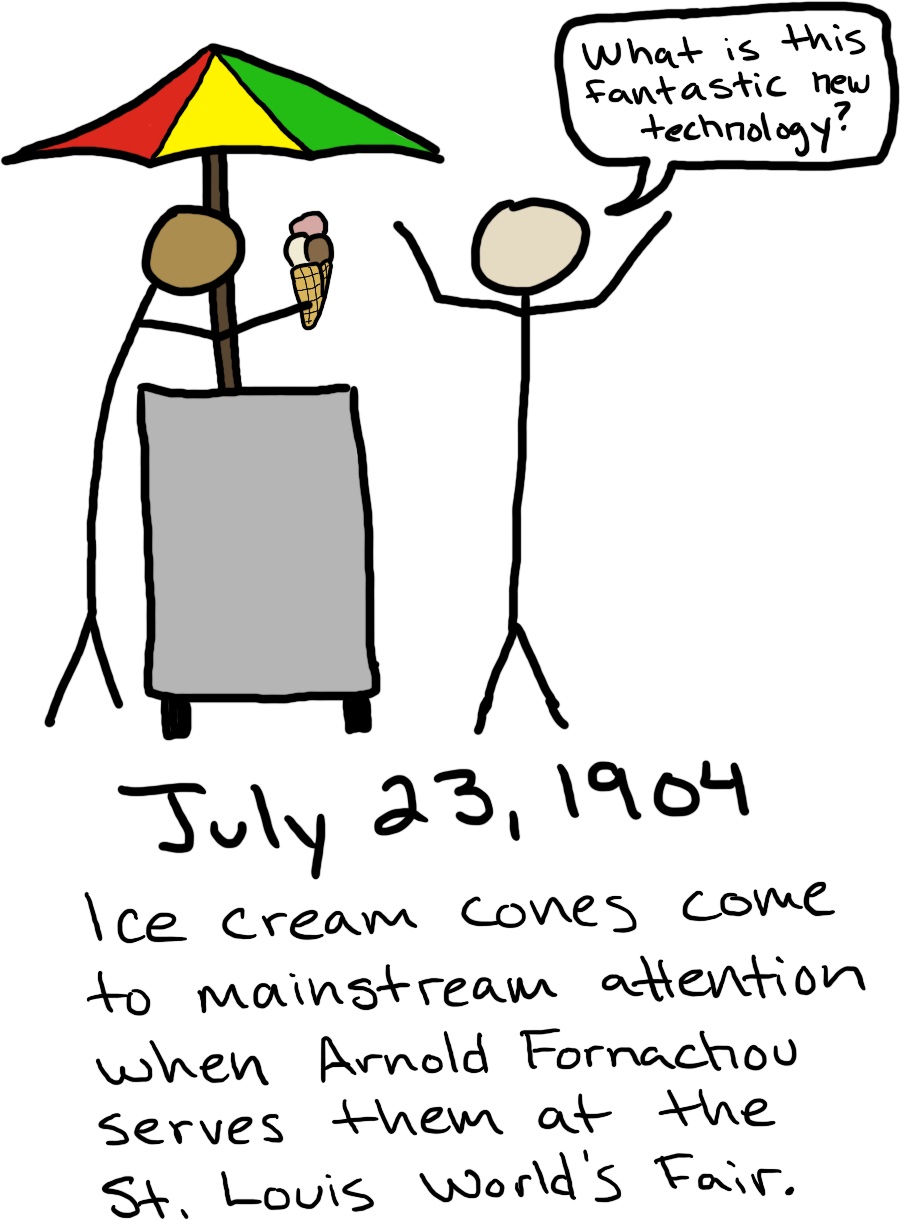 What is this
fantastic new
technology?
July 23, 1904
Ice cream cones come
to mainstream attention
when Arnold Fornachou
serves them at the
St. Louis World's Fair.